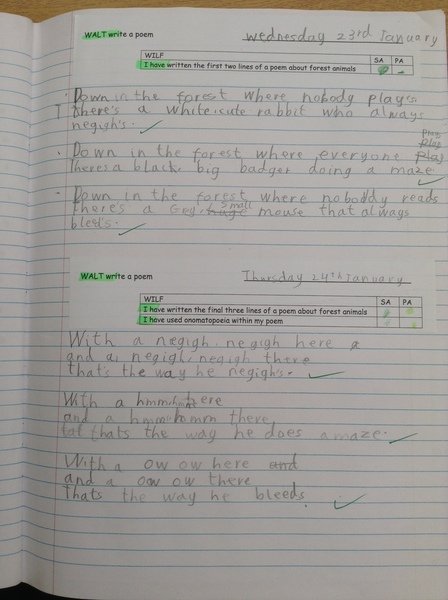 WALT write a poem
Wednesday 23rd January
WILF SA PA
I have written the first two lines of a poem about forest animals
Down in the forest where nobody play's
There's a white cute rabbit who always
negigh's.
plays
play
Down in the forest where everyone play
Theres a black big badger doing a maze.
Down in the forest where noboddy reads
small
There's a Grey, huge mouse that always
bleed's.
WALT write a poem
Thursday 24th January
WILF SA PA
I have written the final three lines of a poem about forest animals
I have used onomatopoeia within my poem
With a negigh, negigh here
and a, negigh, negigh there
thats the way he negigh's.
With a hmm, hmm here
and a hmm hmm there
tat thats the way he does a maze.
With a ow ow here and
and a ow ow there
thats the way he bleeds.